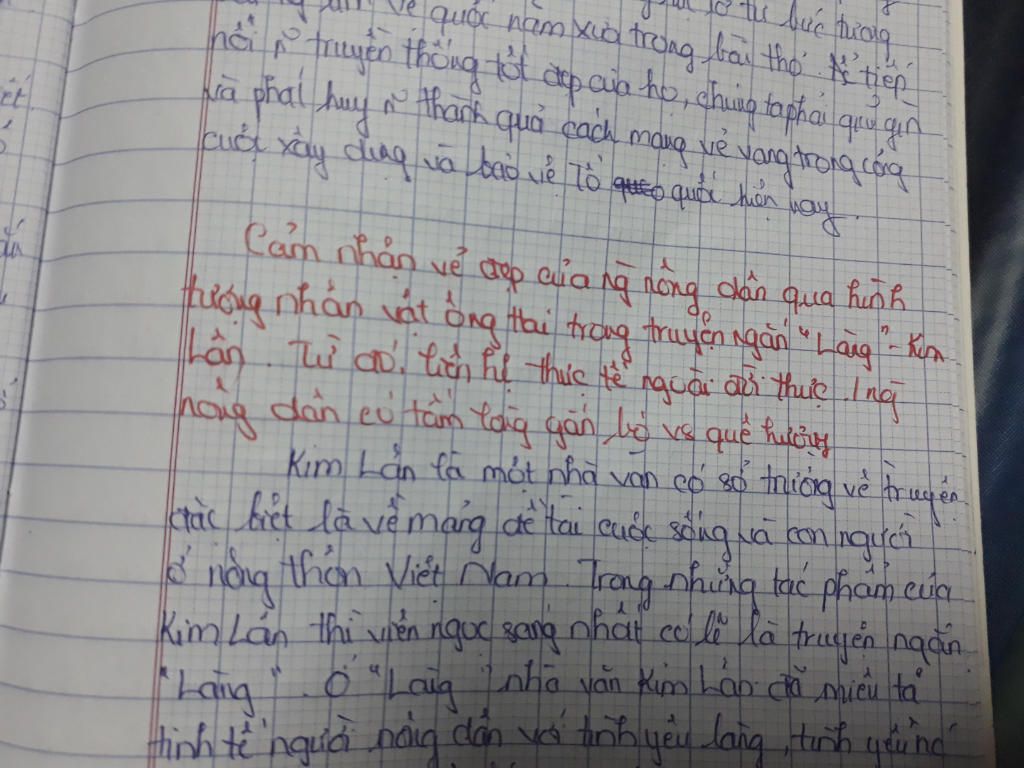 vẻ quốc năm xưa trong bài thơ. Để tiếp
nối n~ truyền thống tốt đẹp của họ, chúng ta phải giữ gìn
và phát huy n~ thành quả cách mạng vẻ vang trong công
cuộc xây dựng và bảo vệ Tổ quốc hiện nay.
Cảm nhận vẻ đẹp của ng~ nông dân qua hình
tượng nhân vật ông Hai trong truyện ngắn "Làng" - Kim
Lân. Từ đó, liên hệ thực tế ngoài đời thực 1 ng~
nông dân có tấm lòng gắn bó vs quê hương
Kim Lân là một nhà văn có sở trường về truyện
đặc biệt là về mảng đề tài cuộc sống và con người
ở nông thôn Việt Nam. Trong những tác phẩm của
Kim Lân thì viên ngọc sáng nhất có lẽ là truyện ngắn
"Làng". Ở "Làng" nhà văn Kim Lân đã miêu tả
tinh tế người nông dân với tình yêu làng, tình yêu nc